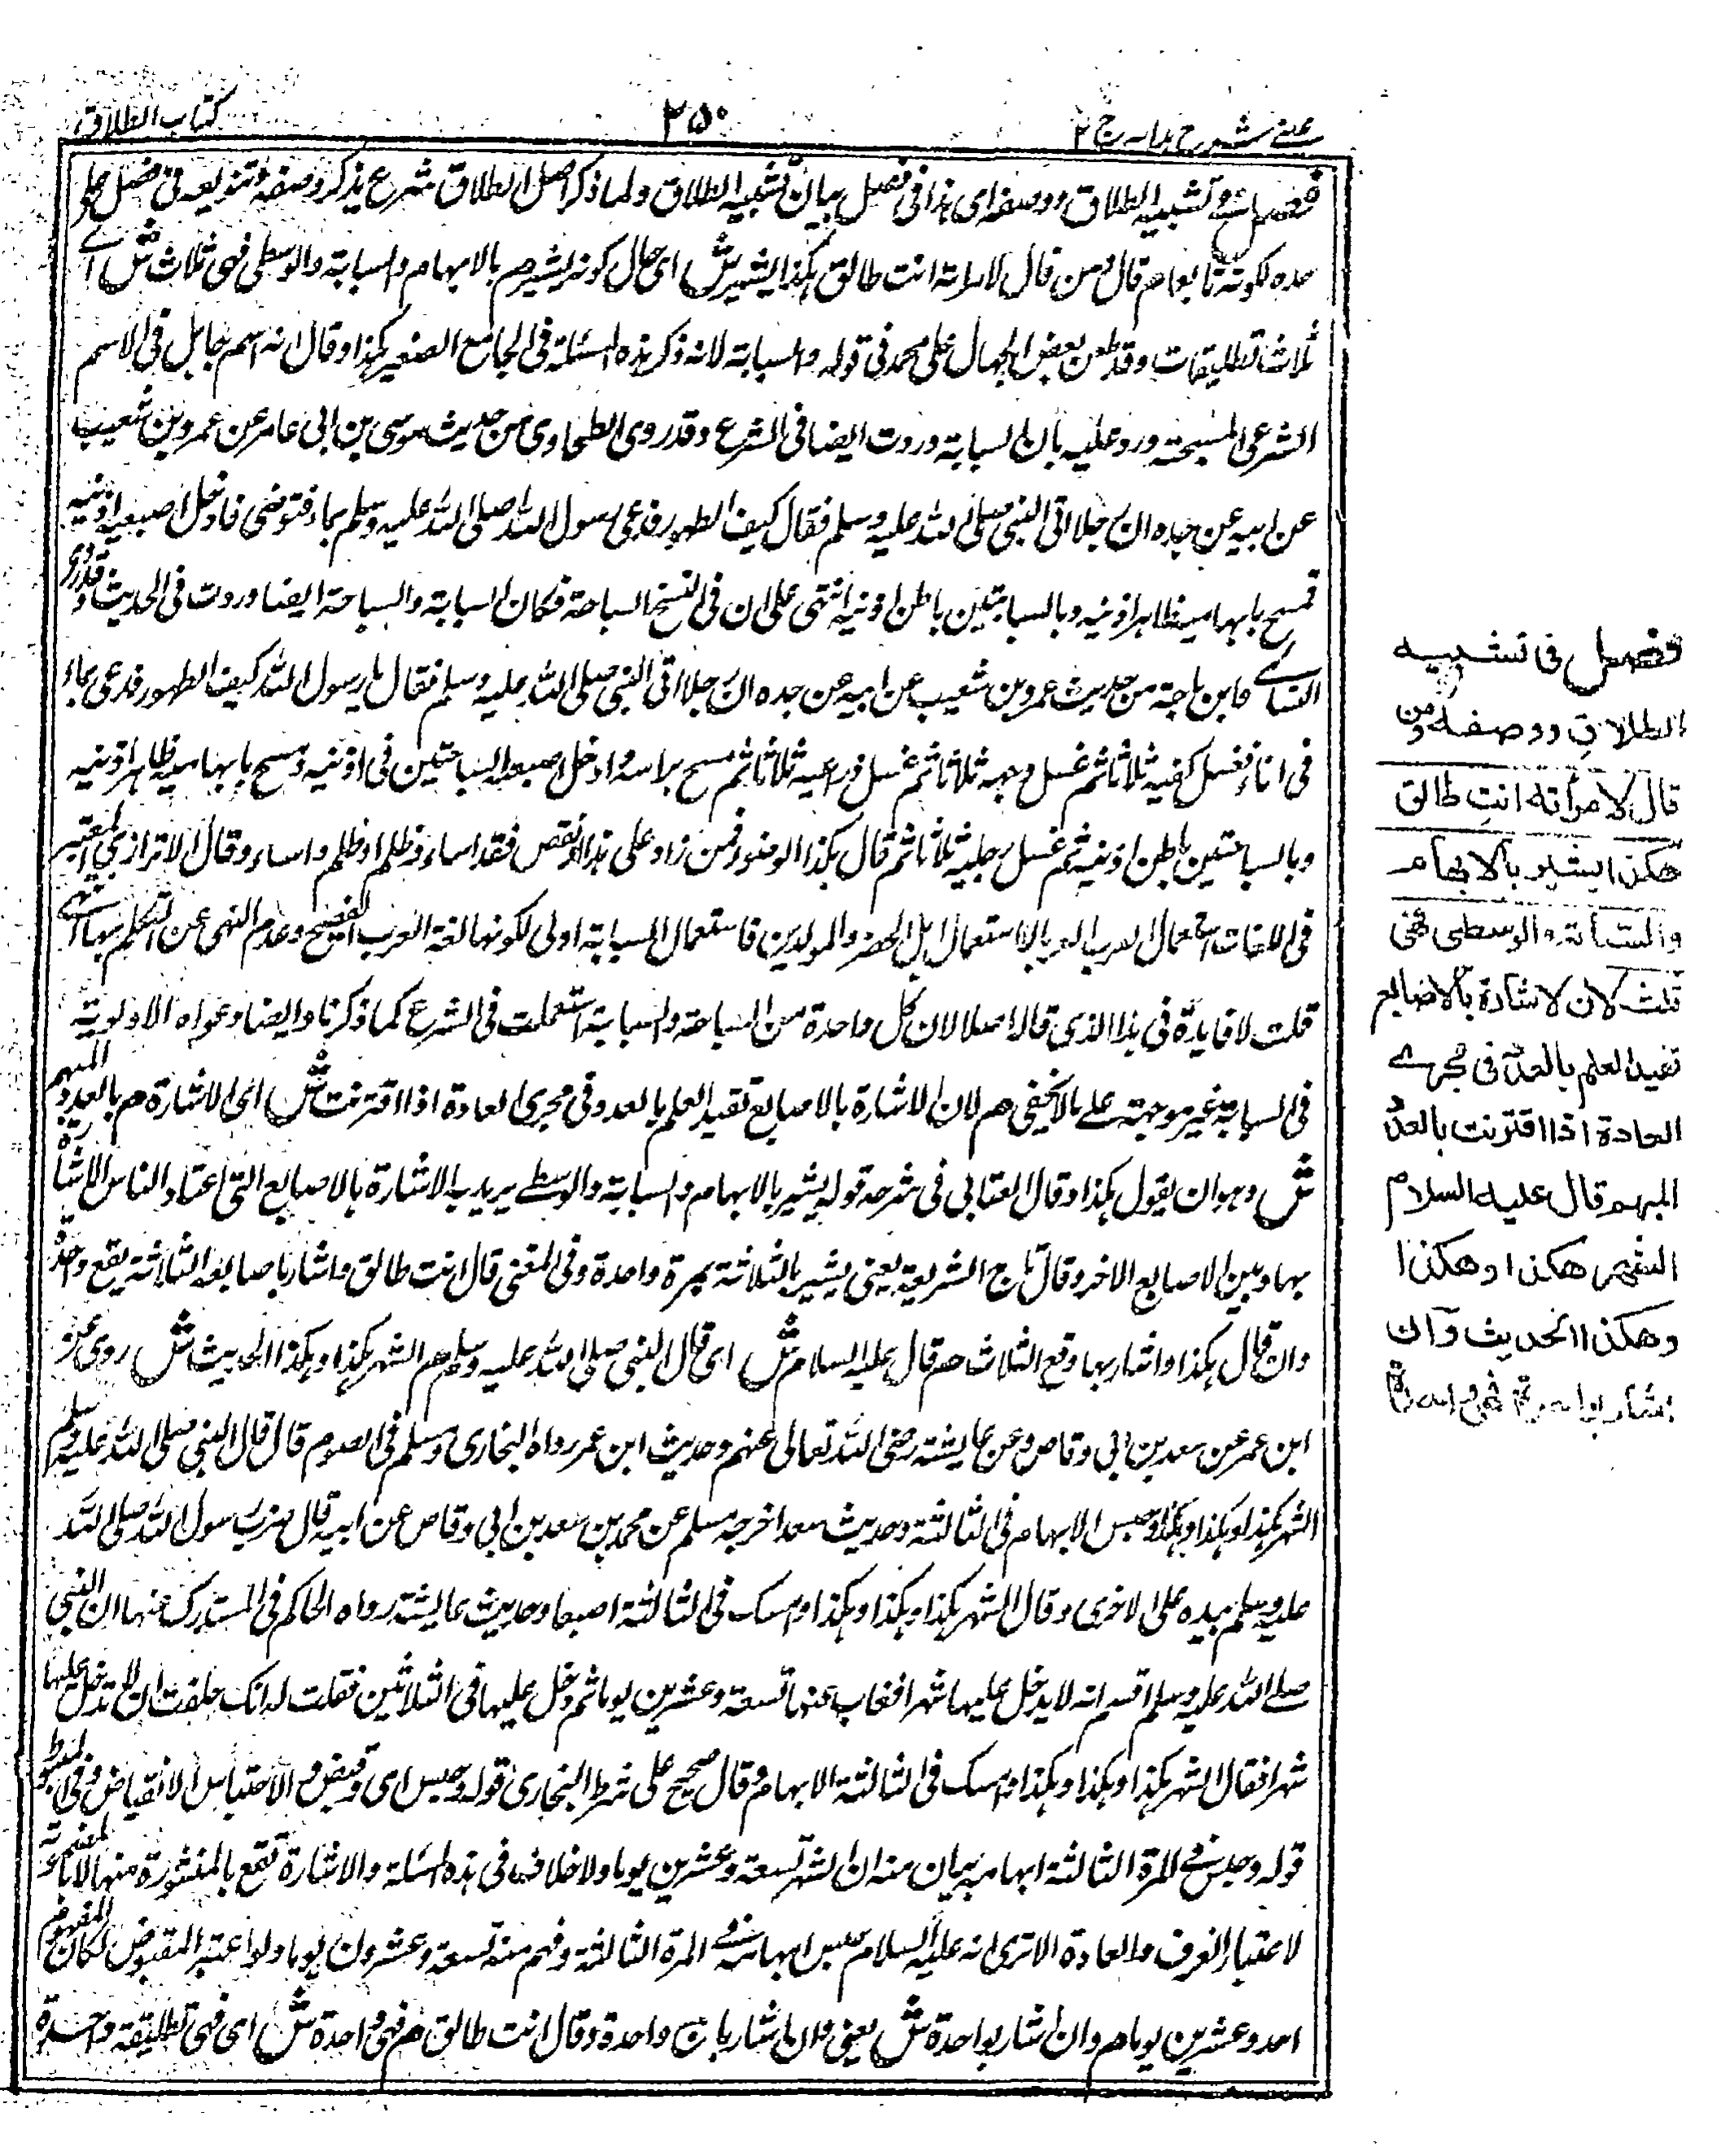 عينے شرح ہدایہ ج ۲
۲۵۰
كتاب الطلاق
فصل ش في تشبيه الطلاق ووصفه اى هذا في فصل بيان تشبيه الطلاق ولما ذكر اصل الطلاق شرع يذكر وصفه وتنويعه في فصل على
حده لكونه تابعا م قال ومن قال لامراته انت طالق هكذا يشير ش اى حال كونه يشير م بالابهام والسبابة والوسطى فهى ثلاث ش اے
ثلاث تطليقات وقد طعن بعض الجهال على محمد في قوله والسبابة لانه ذكر هذه المسئلة في الجامع الصغير هكذا وقال انه اسم جاهل في الاسم
الشرعى المسبحة ورد عليه بان السبابة وردت ايضا في الشرع وقد روى الطحاوى من حديث موسى بن ابى عامر عن عمرو بن شعيب
عن ابيه عن جده ان رجلا اتى النبي صلى الله عليه وسلم فقال كيف الطهور فدعى رسول الله صلى الله عليه وسلم بماء فتوضى فادخل اصبعيه اذنيه
فمسح بابهاميه ظاهر اذنيه وبالسبابتين باطن اذنيه انتهى على ان في النسخ السباحة فكان السبابة والسباحة ايضا وردت في الحديث وقد روى
النسائے وابن ماجة من حديث عمرو بن شعيب عن ابيه عن جده ان رجلا اتى النبي صلى الله عليه وسلم فقال يا رسول الله كيف الطهور فدعى بماء
في اناء فغسل كفيه ثلاثا ثم غسل وجهه ثلاثا ثم غسل ذراعيه ثلاثا ثم مسح براسه وادخل اصبعيه السباحتين في اذنيه ومسح بابهاميه ظاهر اذنيه
وبالسباحتين باطن اذنيه ثم غسل رجليه ثلاثا ثم قال هكذا الوضوء فمن زاد على هذا او نقص فقد اساء وظلم او ظلم واساء وقال الاترازي المعتبر
في اللغات استعمال العرب العرباء لا استعمال اهل الحضر والمولدين فاستعمال السبابة اولى لكونها لغة العرب الفصيح وعدم النهى عن التكلم بها انتهے
قلت لا فايدة في هذا الذى قاله اصلا لان كل واحدة من السباحة والسبابة استعملت في الشرع كما ذكرنا وايضا دعواه الاولوية
في السبابة غير موجهة على ما لا يخفى م لان الاشارة بالاصابع تفيد العلم بالعدد في مجرى العادة اذا اقترنت ش اى الاشارة م بالعدد المبهم
ش وهو ان يقول هكذا وقال العتابى في شرحه قوله يشير بالابهام والسبابة والوسطے يريد به الاشارة بالاصابع التى اعتاد الناس الاشارة
بها وبين الاصابع الاخر وقال تاج الشريعة يعنى يشير بالثلاثة بمرة واحدة وفى المغنى قال انت طالق واشار باصابعه الثلاثة يقع واحدة
وان قال هكذا واشار بها وقع الثلاث م قال عليه السلام ش اى قال النبي صلى الله عليه وسلم م الشهر هكذا وهكذا الحديث ش روى عن
ابن عمر عن سعد بن ابى وقاص وعن عايشة رضى الله تعالى عنهم وحديث ابن عمر رواه البخارى ومسلم في الصوم قال قال النبي صلى الله عليه وسلم
الشهر هكذا وهكذا وهكذا وحبس الابهام في الثالثة وحديث سعد اخرجه مسلم عن محمد بن سعد بن ابى وقاص عن ابيه قال ضرب رسول الله صلى الله
عليه وسلم بيده على الاخرى وقال الشهر هكذا وهكذا وهكذا وامسك في الثالثة اصبعا وحديث عايشة رواه الحاكم في المستدرك عنها ان النبي
صلے الله عليه وسلم اقسم انه لا يدخل عليها شهرا فغاب عنها تسعة وعشرين يوما ثم دخل عليها في الثلاثين فقلت له انك حلفت ان لا تدخل عليها
شهرا فقال الشهر هكذا وهكذا وهكذا وامسك في الثالثة الابهام وقال صحيح على شرط البخارى قوله وحبس اى وقبض والاحتباس الانقباض وفى المبسوط
قوله وحبس في المرة الثالثة ابهامه بيان منه ان الشهر تسعة وعشرين يوما ولا خلاف في هذه المسئلة والاشارة تقع بالمنشورة منها لا المضمومة
لاعتبار العرف والعادة الا ترى انه عليه السلام حبس ابهامه في المرة الثالثة وفهم منه تسعة وعشرون يوما ولو اعتبر المقبوض لكان المفهوم
احد وعشرين يوما م وان اشار بواحدة ش يعنى وان اشار باصبع واحدة وقال انت طالق م فهى واحدة ش اى فهى تطليقة واحدة
فصل فى تشبيه
الطلاق ووصفه ومن
قال لامرأته انت طالق
هكذا يشير بالابهام
والسبابة والوسطى فهى
ثلث لان الاشارة بالاصابع
تفيد العلم بالعدد فى مجرے
العادة اذا اقترنت بالعدد
المبهم قال عليه السلام
الشهر هكذا وهكذا
وهكذا الحديث وان
اشار بواحدة فهى واحدة